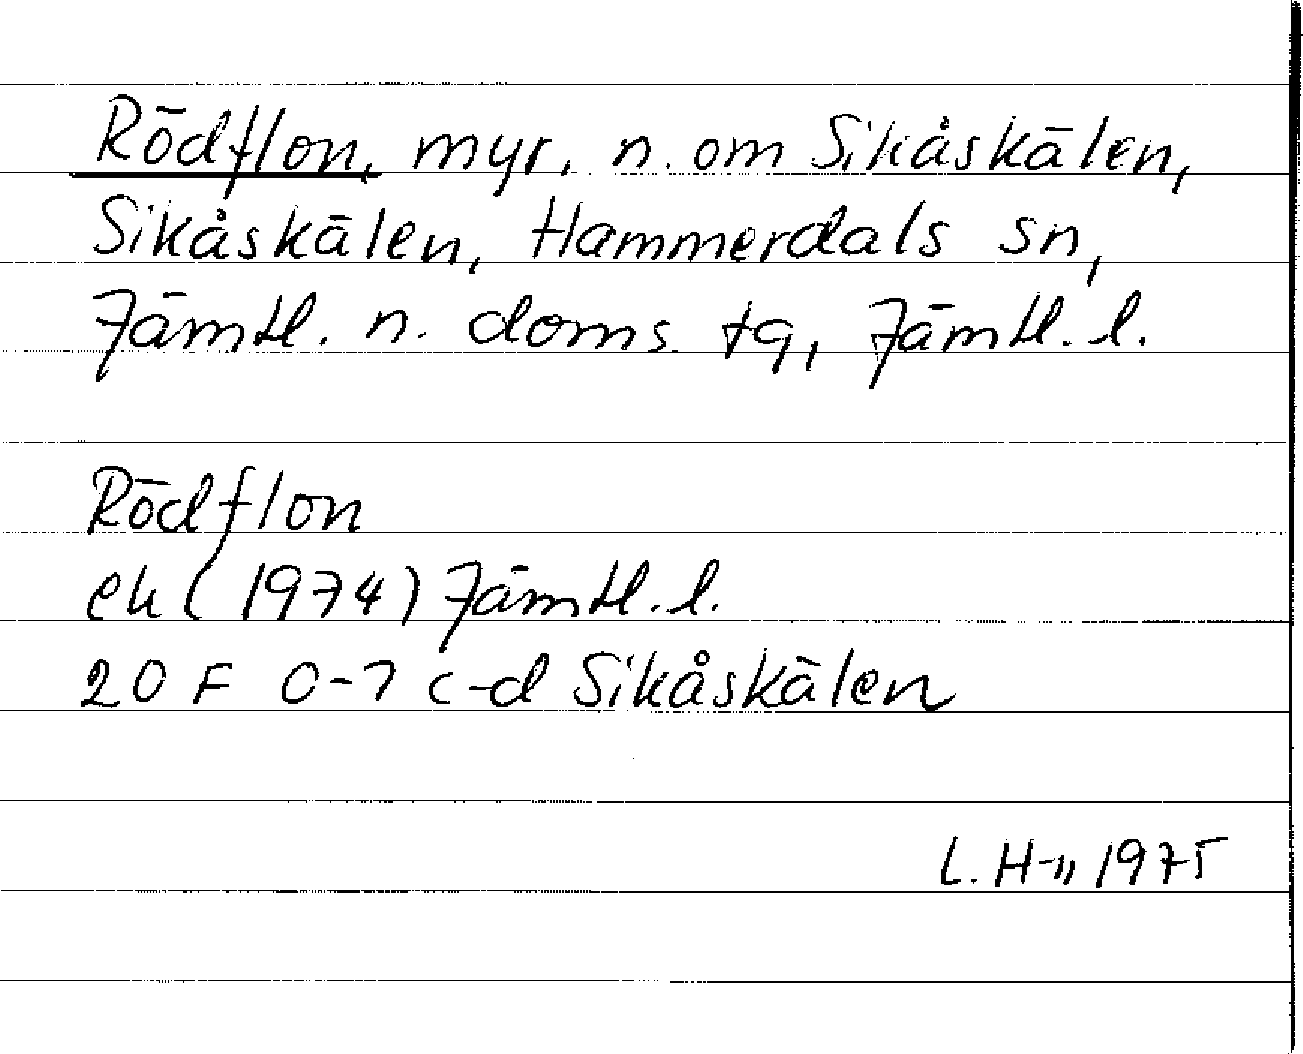 Rödflon, myr, n. om Sikåskälen,
Sikåskälen, Hammerdals sn,
Jämtl. n. doms. tg, Jämtl. l.
Rödflon
ek (1974) Jämtl. l.
20 F 0-7 c-d Sikåskälen
L. H-n 1975